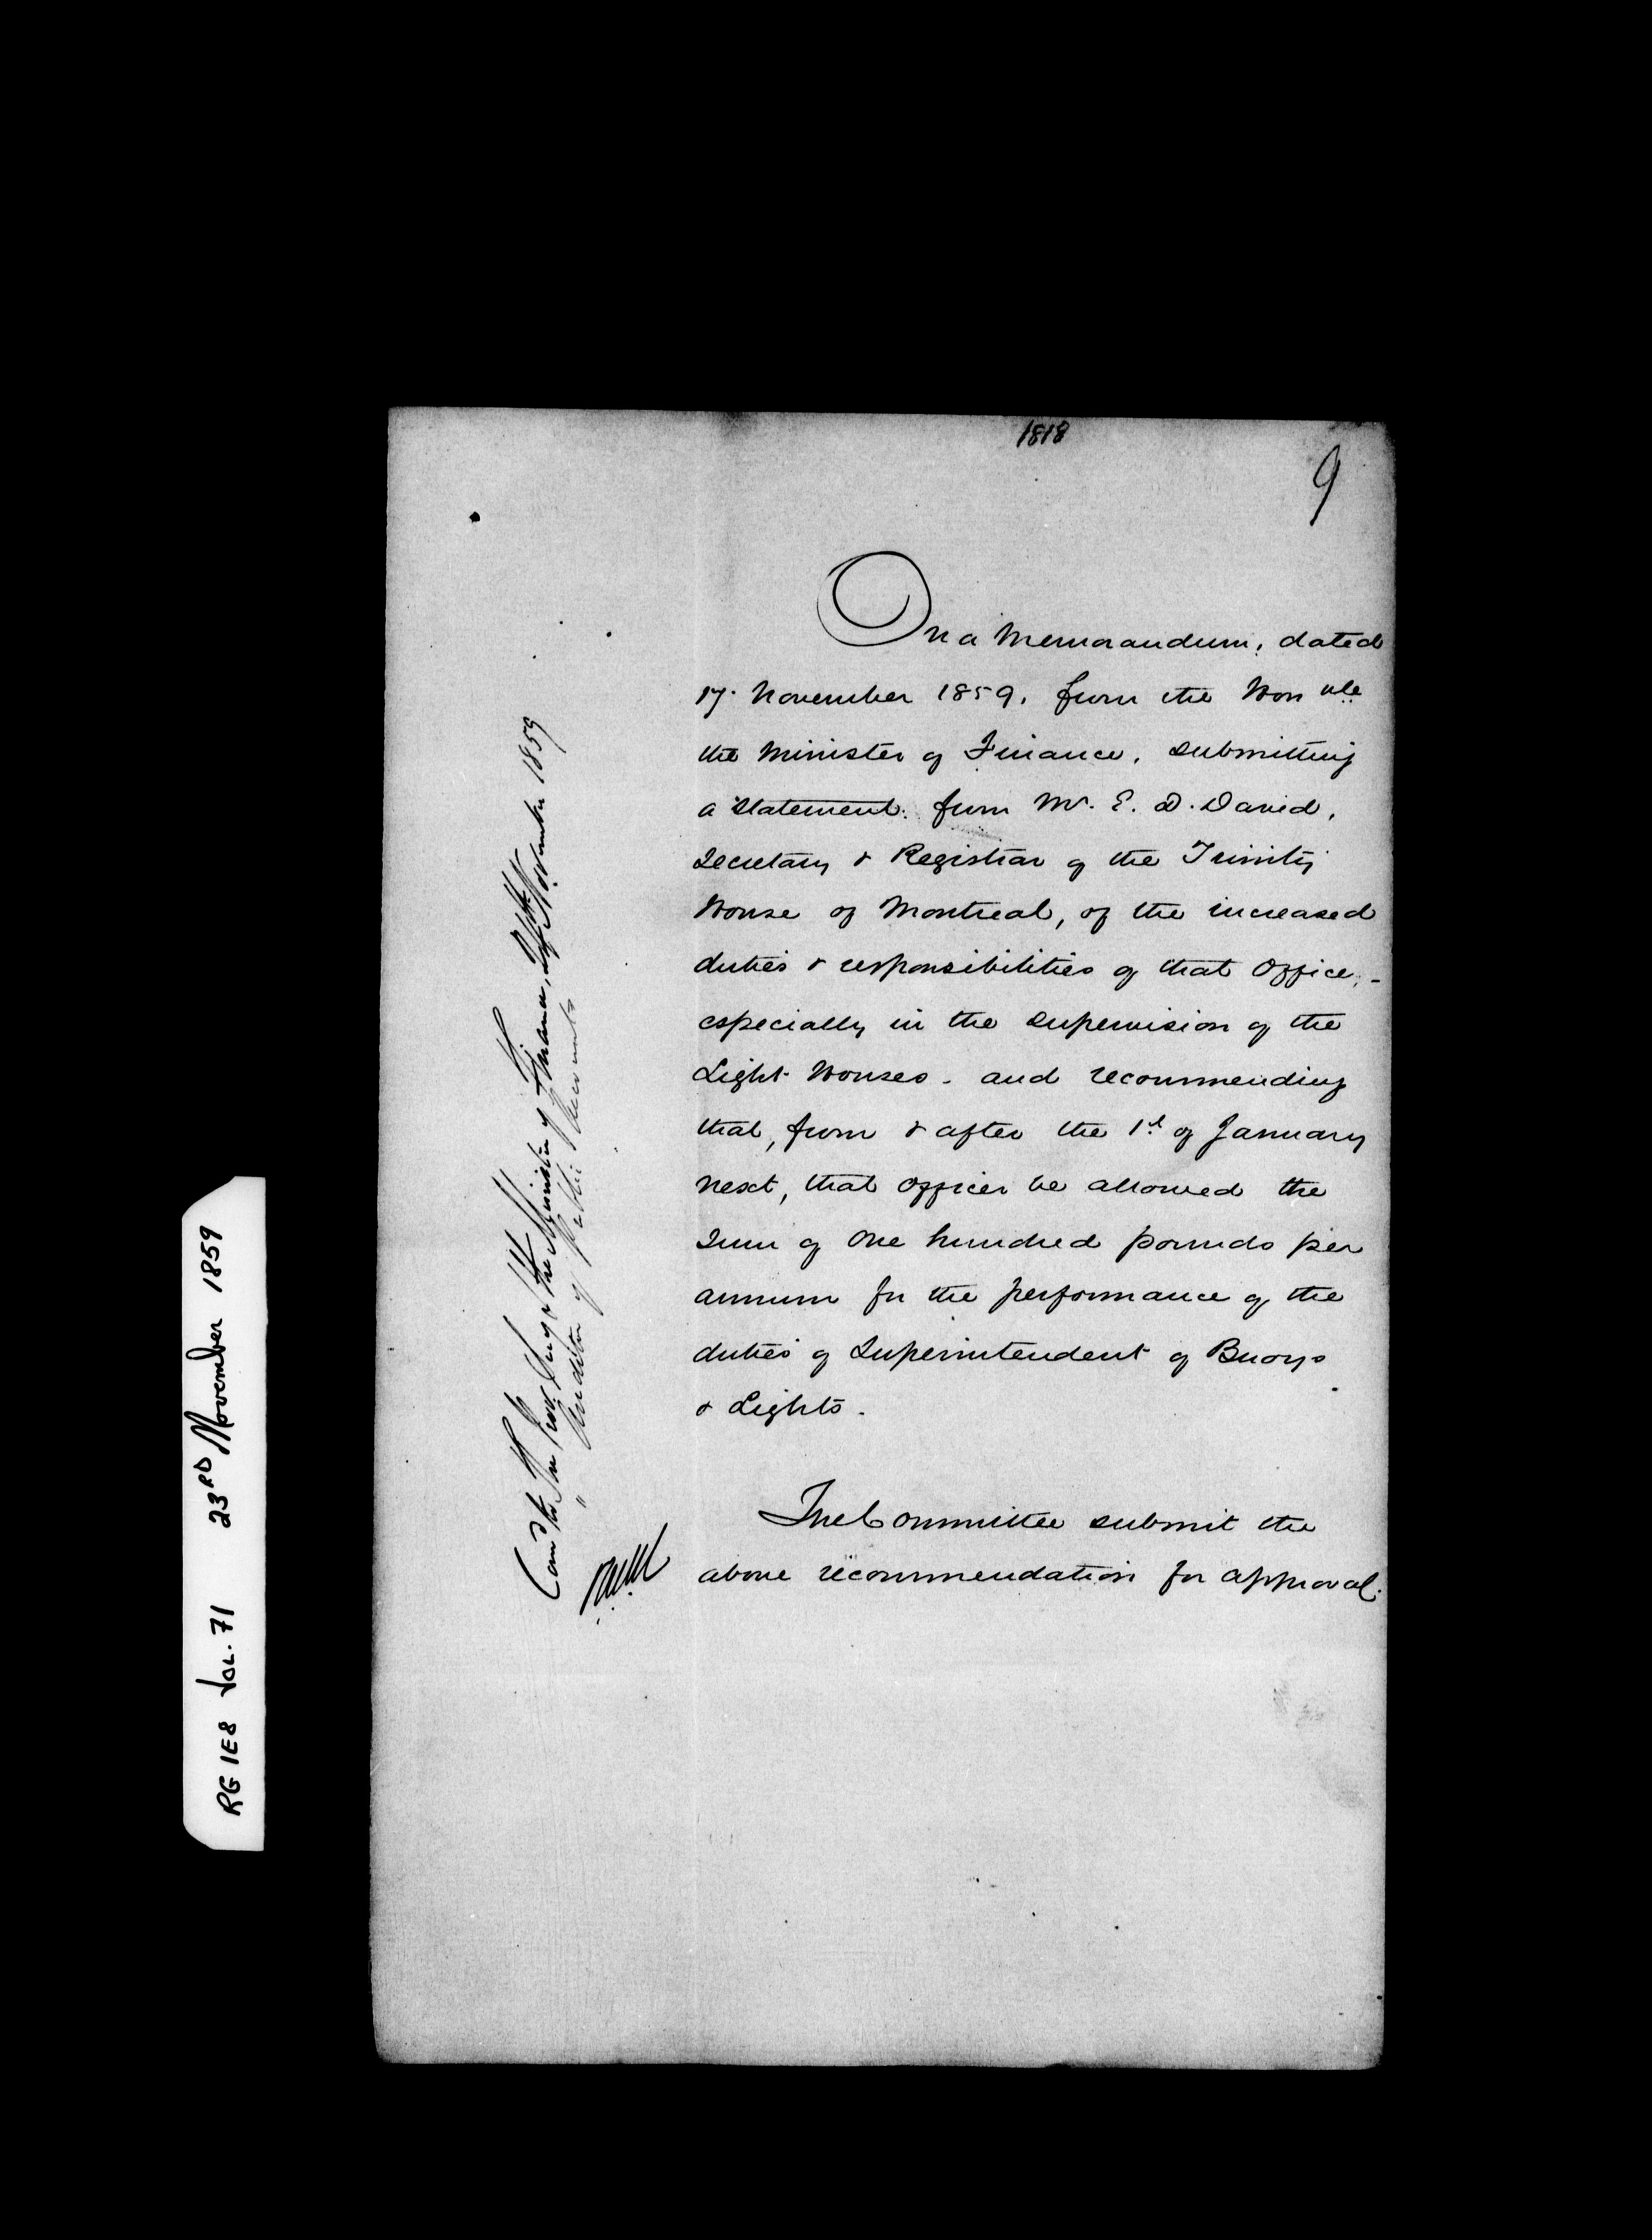 1818
9
On a Memorandum, dated
17. November 1859, from the Honble
the Minister of Finance, submitting
a Statement from Mr. E. D. David,
Secretary & Registrar of the Trinity
House of Montreal, of the increased
duties & responsibilities of that Office,-
especially in the supervision of the
Light Houses - and recommending
that, from & after the 1st of January
next, that Officer be allowed the
Sum of One hundred pounds per
annum for the performance of the
duties of Superintendent of Buoys
& Lights -
The Committee submit the
above recommendation for approval.
to The Prov. Secy & the Minister of Finance, 24th November 1859
" Auditor of Public Accounts
RG 1E8 VOL. 71 23RD November 1859